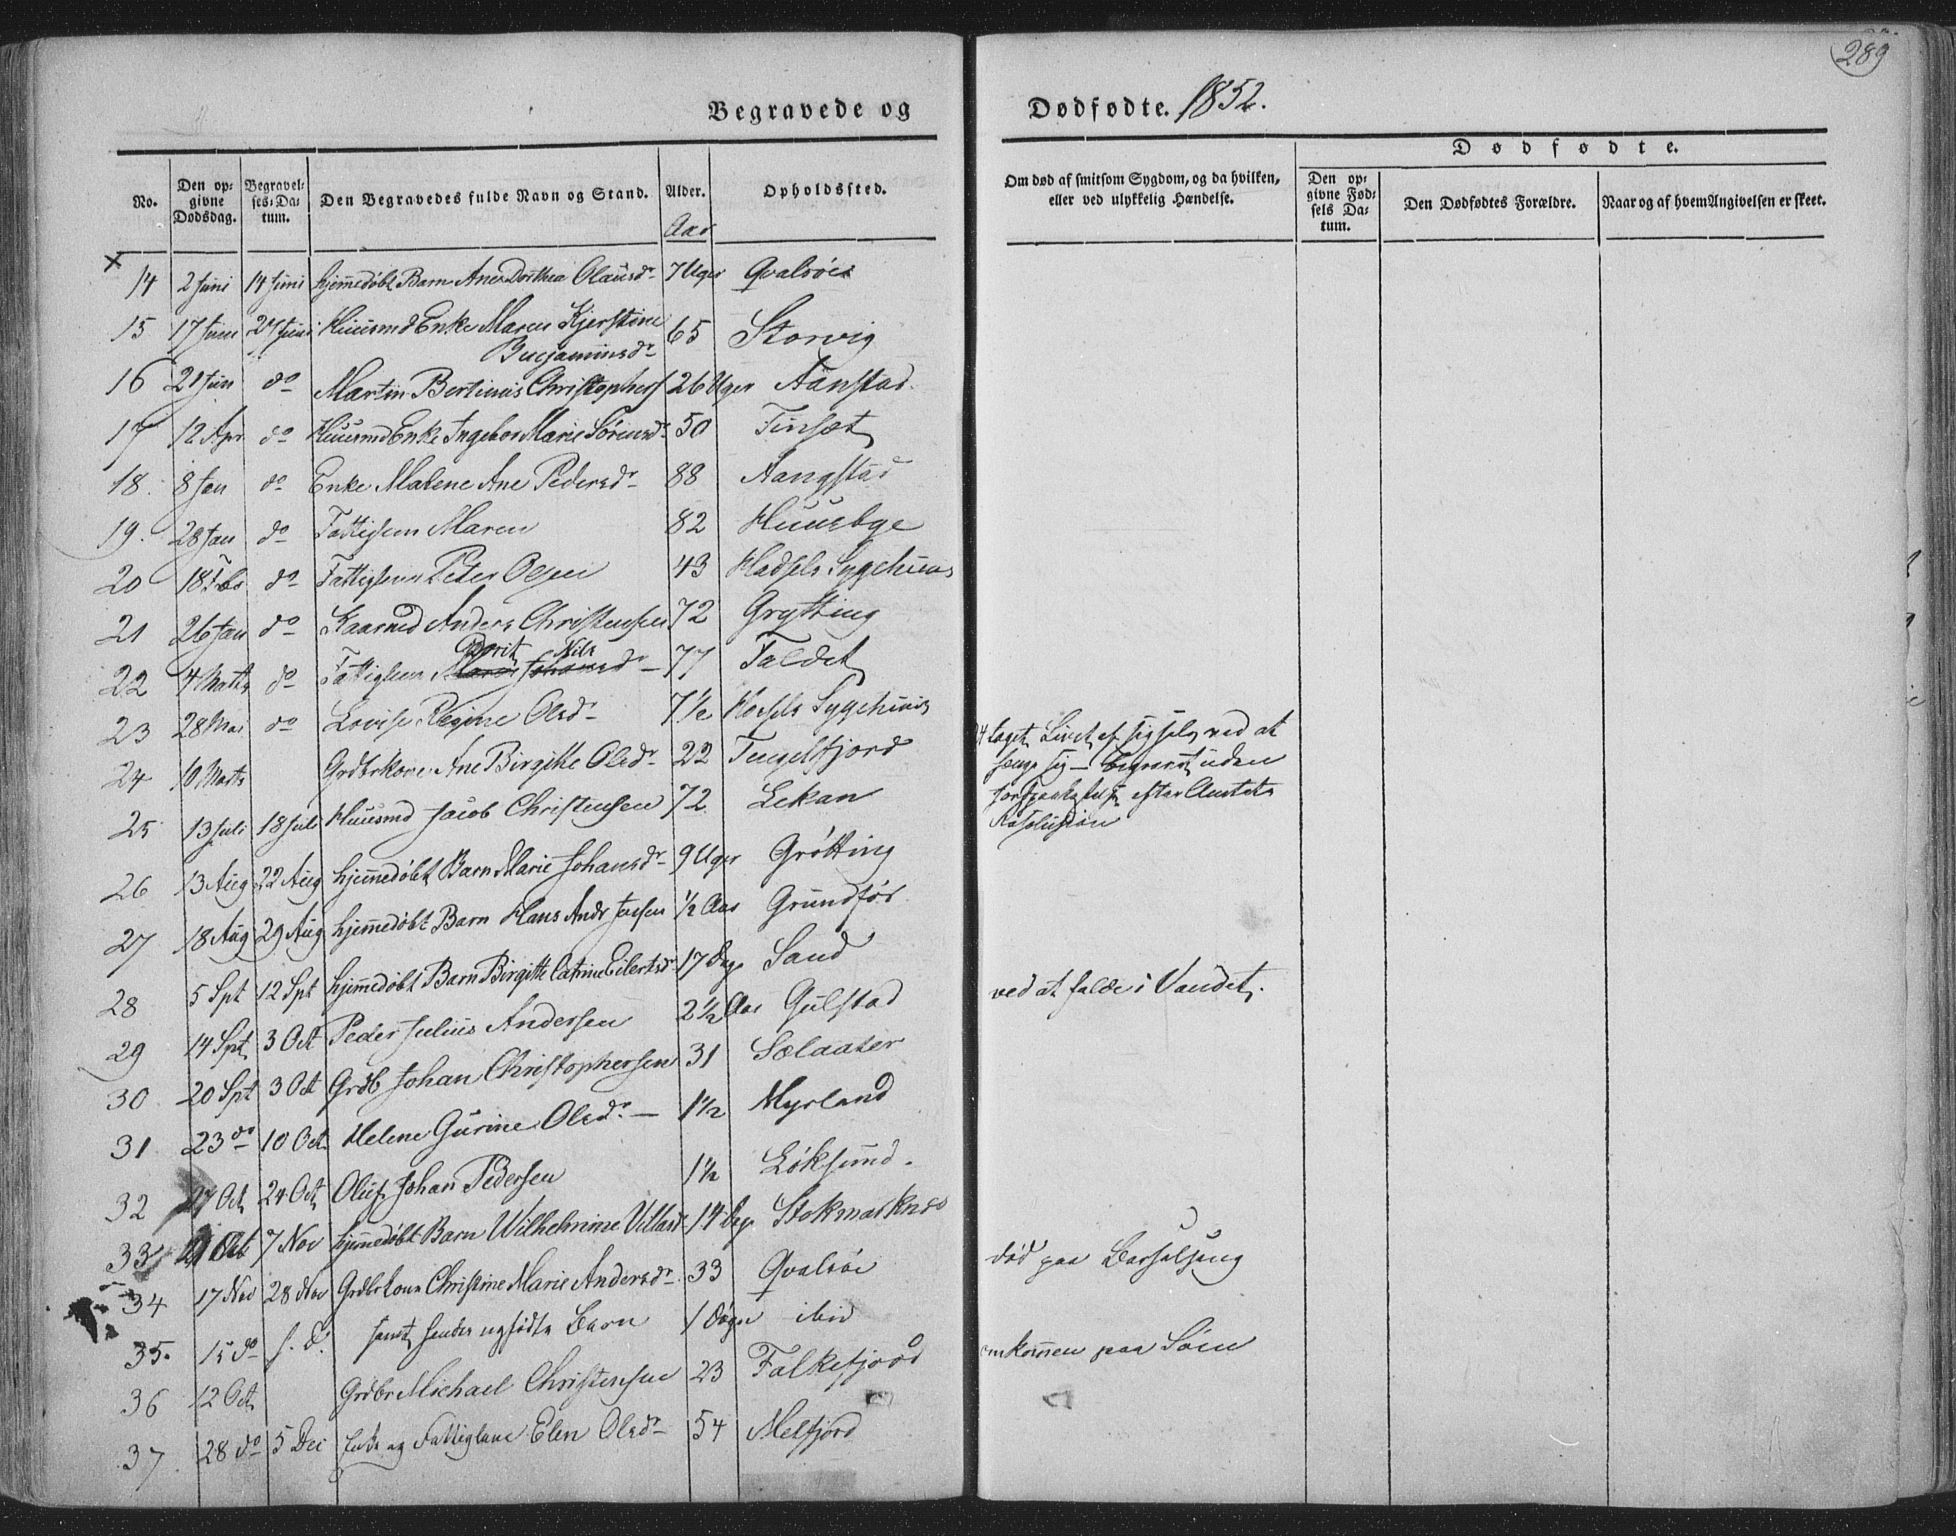 289
Begravede og
Dødfødte. 1852.
No.
Den opgivne Dødsdag.
Begravelses-Datum.
Den Begravedes fulde Navn og Stand.
Alder.
Opholdssted.
Om død af smitsom Sygdom, og da hvilken, eller ved ulykkelig Hændelse.
Dødfødte.
Den opgivne Fødsels Datum.
Den Dødfødtes Forældre.
Naar og af hvem Angivelsen er skeet.
Aar
14 2 Juni 14 Juni hjemmedøbt Barn Ane Dorthea Olausdr 7 Uger Qvalsøe
15 17 Juni 27 Juni Huusmd Enke Maren Kjerstine
Benjaminsdr 65 Storvig
16 21 Jun do Martin Bertinius Christophers 26 Uger Aanstad
17 12 Apr do Huusmd Enke Ingebor Marie Sørensdr 50 Finsæt
18. 8 Jan do Enke Malene Ane Pedersdr 88 Aangstad
19. 28 Jan do Fattiglem Maren 82 Huusbye
20 18 Feb do Fattiglem Peter Olsen 43 Hadsels Sygehuus
21 26 Jan do Kaarmd Anders Christensen 72 Grytting
22 4 Marts do Fattiglem Marit Nils Johansdr 77 Faldet
23 28 Mai do Lovise Regine Olsdr 7½ Sygehuus
24 10 Marts Grdbrkone Ane Birgitte Olsdr 22 Tengelfjord
taget Livet af sig selv ved at
henge sig — begravet uden
efter Amtets
Resolution
25 13 Juli 18 Juli Huusmd Jacob Christensen 72 Lekan
26 13 Aug 22 Aug hjemmedøbt Barn Marie Johansdr 9 Uger Grøtting
27 18 Aug 29 Aug hjemmedøbt Barn Hans Andr Jensen ½ Aar Grundfør
28 5 Spt 12 Spt hjemmedøbt Barn Birgitte Catrine Eilertsdr 17 Dage Sand
29 14 Spt 3 Oct Peder Julius Andersen 2½ Aar Gulstad ved at falde i Vandet.
30 20 Spt 3 Oct Grdb Johan Christophersen 31 Sælaater
31 23 do 10 Oct Helene Gurine Olsdr. — 1½ Myrland
32 17 Oct 24 Oct Oluf Johan Pedersen 1½ Løksund.
33 21 Oct 7 Nov hjemmedøbt Barn Wilhelmine Villasdr 14 Dage Stokmarknes
34 17 Nov 28 Nov Grdbrkone Christine Marie Andersdr 33 Qvalsøe død paa Barselseng
35. 15 do s. D. samt hendes nyfødte Barn 1 Døgn ibid
36 12 Oct Grdbr Michael Christensen 23 Falkefjord omkommen paa Søen
37 28 do 5 Dec og Fattiglem Elen Olsdr 54 Melfjord